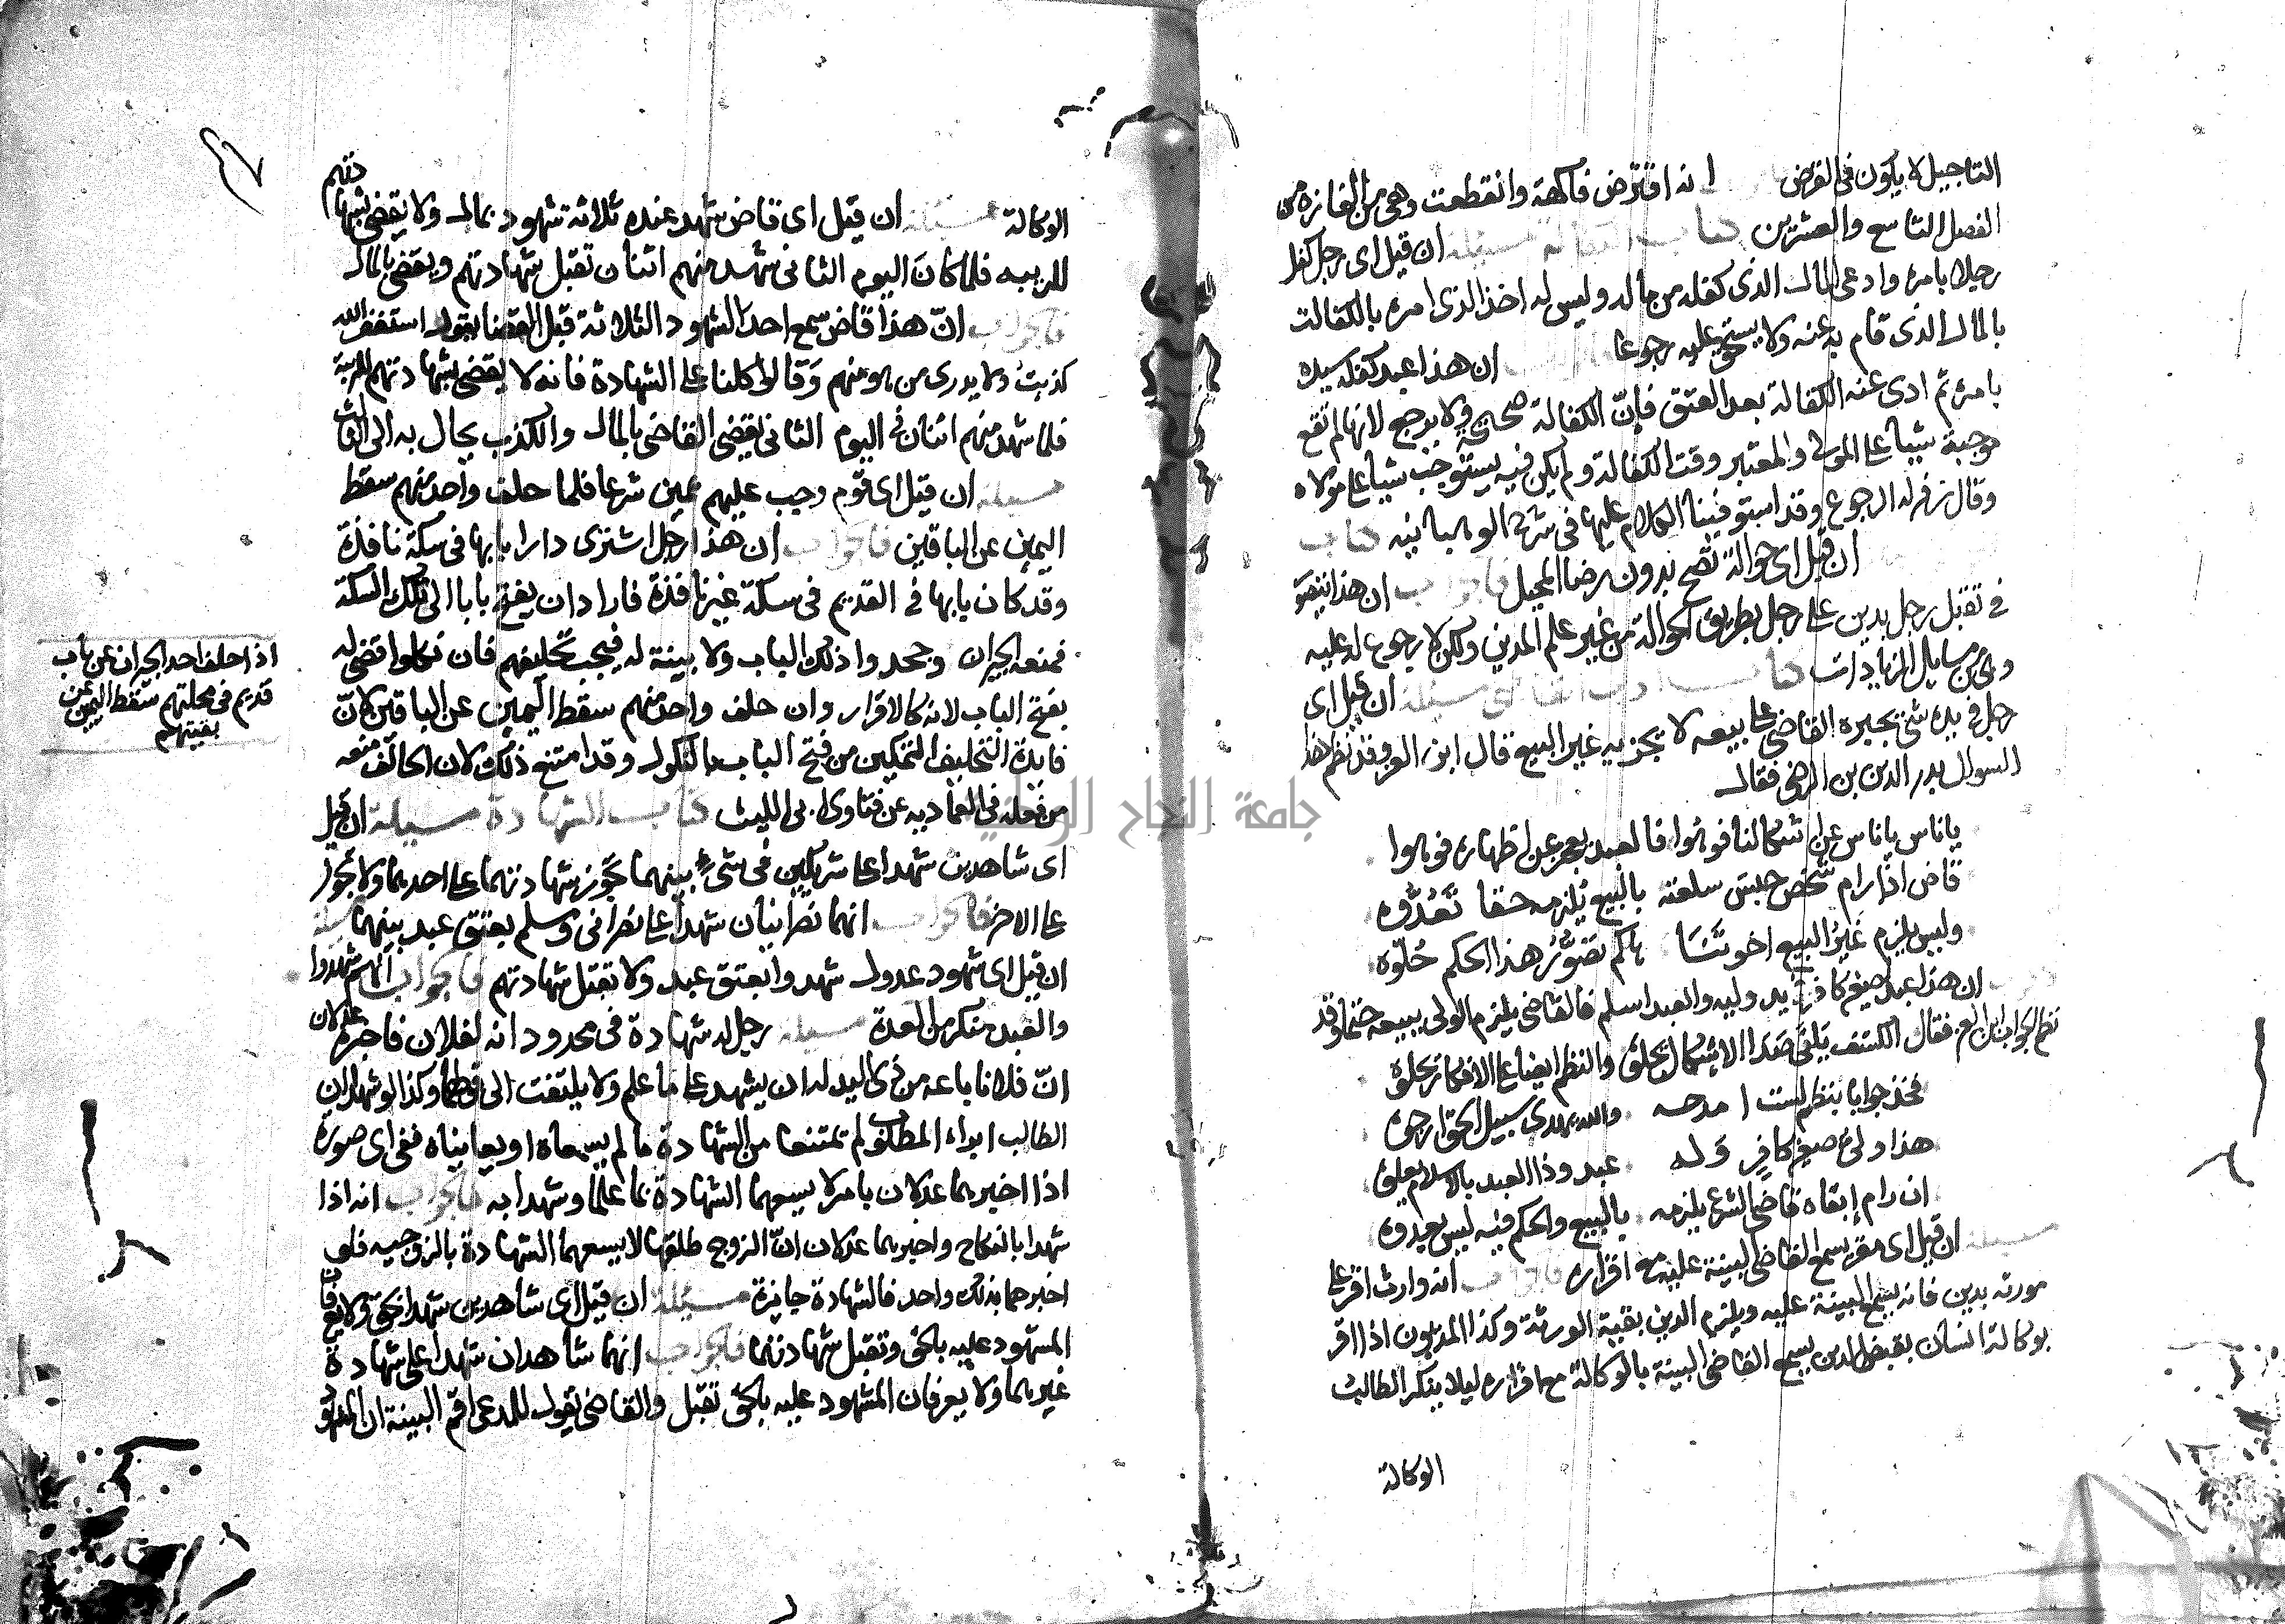 التاجيل لا يكون في القرض انه اقترض فاكهة وانقطعت وهي من الغازه من
الفصل التاسع والعشرين كتاب الكفالة مسئلة ان قيل اي رجل كفل
رجلا بامره وادعى المال الذي كفله من ماله وليس له اخذ الذي امره بالكفالت
بالمال الذي قام به عنه ولا يستحق عليه رجوعا ان هذا عبد كفله سيده
بامره ثم ادى عنه الكفالة بعد العتق فانّ الكفالة صحيحة ولا يرجع لانها لم تقع
موجبة شيا على المولى والمعتبر وقت الكفالة ولم يكن فيه يستوجب شيا على مولاه
وقال زفر له الرجوع وقد استوفينا الكلام عليها في شرح الوهبانيه كتاب
ان قيل اي حوالة تصح بدون رضا المحيل فالجواب ان هذا يتصور
في تقبل رجل بدين على رجل بطريق الحوالة من غير علم المدين ولكن لا رجوع له عليه
وهي من مسايل الزيادات كتاب ادب القاضي مسئلة ان قيل اي
رجل في يده شي يجبره القاضي على بيعه لا يجزيه غير البيع قال ابن العز وقد نظم هذا
السوال بدر الدين بن الرضي فقال
ياناس ياناس عن اشكالنا فوهوا فالعبد يعجز عن اظهاره فوهوا
قاض اذا رام شخص حبس سلعته بالبيع يلزمه حقا تعدوه
وليس يلزم غير البيع اخوتنا هاكم تصور هذا الحكم خلوه
ان هذا عبد صغير كافر بيد وليه والعبد اسلم فالقاضي يلزم الولي ببيعه حتما وقد
نظم الجواب ابن العز فقال اكشف يلقى صدا الاشكال نجلوه والنظم ايضا على الافكار نجلوه
فخذ جوابا بنظم لست امدحه والله يهدي سبيل الحق ارجوه
هذا ولي صغير كافر وله عبد وذا العبد بالاسلام يعلوه
ان رام إبقاه قاضي الشرع يلزمه بالبيع والحكم فيه ليس يعدوه
مسئلة ان قيل اي مقر يسمع القاضي البينة عليه مع اقراره فالجواب انه وارث اقر على
مورثه بدين فانه يسمع البينة عليه ويلزم الدين بقية الورثة وكذا المديون اذا اقر
بوكالة انسان بقبض الدين يسمع القاضي البينة بالوكالة مع اقراره ليلا ينكر الطالب
الوكالة
الوكالة مسئلة ان قيل اي قاض شهد عنده ثلاثة شهود بمال ولا يقضي بشهادتهم
للريبه فلما كان اليوم الثاني شهد منهم اثنان تقبل شهادتهم ويقضي بالمال
فالجواب انّ هذا قاض سمع احد الشهود الثلاثة قبل القضا يقول استغفر الله
كذبت ولا يدرى من هو منهم وقالوا كلنا على الشهادة فانه لا يقضي بشهادتهم للريبة
فلما شهد منهم اثنان في اليوم الثاني يقضي القاضي بالمال والكذب يحال به الى الثالث
مسيله ان قيل اي قوم وجب عليهم يمين شرعا فلما حلف واحد منهم سقط
اليمين عن الباقين فالجواب ان هذا رجل اشترى دارا بابها في سكة نافذة
وقد كان بابها في القديم في سكة غير نافذة فاراد ان يفتح بابا الى تلك السكة
فمنعه الجيران وجحدوا ذلك الباب ولا بينة له فيجب تحليفهم فان نكلوا قضي له
بفتح الباب لانه كالاقرار وان حلف واحد منهم سقط اليمين عن الباقين لانّ
فايدة التحليف التمكين من فتح الباب بالنكول وقد امتنع ذلك لان الحالف منعه
من فعله في العماديه عن فتاوى ابي الليث كتاب الشهادة مسيلة ان قيل
اي شاهدين شهدا على شريكين في شيء بينهما تجوز شهادتهما على احدهما ولا تجوز
على الاخر فالجواب انهما نصرانيان شهدا على نصراني ومسلم بعتق عبد بينهما مسئلة
ان قيل اي شهود عدول شهدوا بعتق عبد ولا تقبل شهادتهم فالجواب انهم شهدوا
والعبد منكر من العدة مسيله رجل له شهادة في محدود انه لفلان فاخبره عدلان
انّ فلانا باعه من ذي اليد له ان يشهد على ما علم ولا يلتفت الى قولهما وكذا لو شهد ان
الطالب ابراء المطلوب لم يمتنعا من الشهادة ما لم يسمعاه او يعايناه ففي اي صورة
اذا اخبرهما عدلان بامر لا يسعهما الشهادة بما علما وشهدا به فالجواب انه اذا
شهدا بالنكاح واخبرهما عدلان انّ الزوج طلقها لا يسعهما الشهادة بالزوجيه فلو
اخبرهما بذلك واحد فالشهادة جايزة مسئلة ان قيل اي شاهدين شهدا بحق ولا يعرفان
المشهود عليه بالحق وتقبل شهادتهما فالجواب انهما شاهدان شهدا على شهادة
غيرهما ولا يعرفان المشهود عليه بالحق تقبل والقاضي يقول للمدعي اقم البينة ان
اذا حلف احد الجيران عن باب
قديم في محلتهم سقط اليمين عن
بقيتهم
جامعة النجاح الوطنية